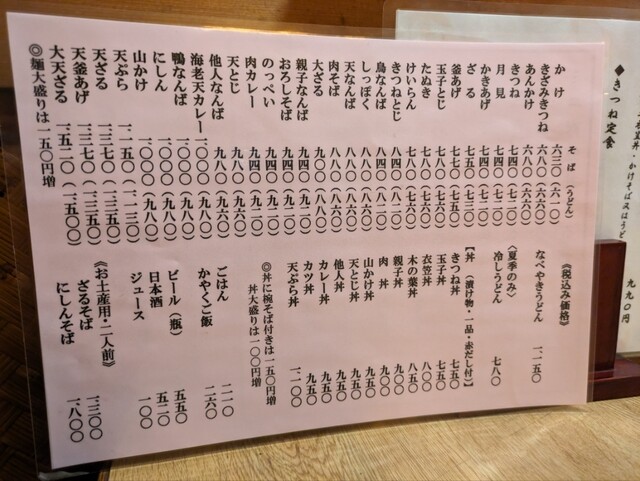 そば（うどん）
かけ 六三〇（六一〇）
きざみきつね 六八〇（六六〇）
あんかけ 六八〇（六六〇）
きつね 七四〇（七二〇）
月見 七四〇（七二〇）
かきあげ 七四〇（七二〇）
ざる 七五〇（七三〇）
釜あげ 七七〇（七五〇）
玉子とじ 七八〇（七六〇）
たぬき 七八〇（七六〇）
けいらん 七八〇（七六〇）
きつねとじ 八四〇（八二〇）
鳥なんば 八四〇（八二〇）
しっぽく 八八〇（八六〇）
天なんば 八八〇（八六〇）
肉そば 八八〇（八六〇）
大ざる 九〇〇（八八〇）
親子なんば 九四〇（九二〇）
おろしそば 九四〇（九二〇）
のっぺい 九四〇（九二〇）
肉カレー 九四〇（九二〇）
天とじ 九八〇（九六〇）
他人なんば 九八〇（九六〇）
海老天カレー 一、〇〇〇（九八〇）
鴨なんば 一、〇〇〇（九八〇）
にしん 一、〇〇〇（九八〇）
山かけ 一、〇〇〇（九八〇）
天ぷら 一、一五〇（一、一三〇）
天ざる 一、三七〇（一、三五〇）
天釜あげ 一、三七〇（一、三五〇）
大天ざる 一、五二〇（一、五〇〇）
◎麺大盛りは一五〇円増
《税込み価格》
なべやきうどん 一、一五〇
〈夏季のみ〉
冷しうどん 七八〇
【丼（漬け物・一品・赤だし付）】
きつね丼 七五〇
玉子丼 七五〇
衣笠丼 八〇〇
木の葉丼 八五〇
親子丼 九〇〇
肉丼 九〇〇
山かけ丼 九五〇
天とじ丼 九五〇
他人丼 九五〇
カレー丼 九五〇
カツ丼 九五〇
天ぷら丼 一、一〇〇
◎丼に椀そば付きは一五〇円増
丼大盛りは一〇〇円増
ごはん 二一〇
かやくご飯 二六〇
ビール（瓶） 五五〇
日本酒 五二〇
ジュース 一〇〇
《お土産用・二人前》
ざるそば 一、三〇〇
にしんそば 一、八〇〇
◆きつね定食
丼・かけそば又はうど
九九〇円